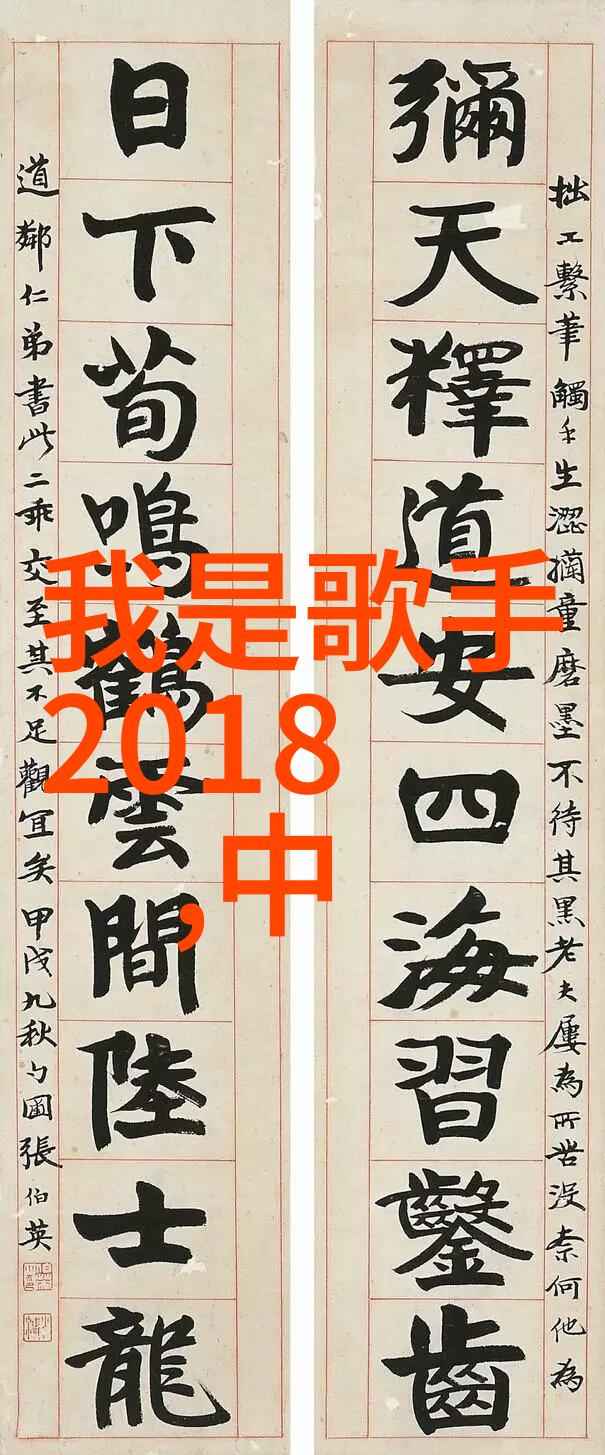 彌天釋道安四海習鑿齒
拙工繫筆觸手生澀擫童磨墨不待其黑老夫屢為所苦沒柰何他為
日下荀鳴鶴雲間陸士龍
道鄰仁弟書此二乖交至其不足觀宜矣甲戌九秋勺圃張伯英
我是歌手
2018
,中